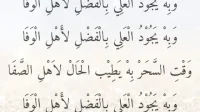 وَبِهْ يَجُودُ الْعَلِي بِالْفَضْلِ لَأَهْلِ الْوَفَا
وَبِهْ يَجُودُ الْعَلِي بِالْفَضْلِ لَأَهْلِ الْوَفَا
وَقْتِ السَّحَرْ بِهْ يَطِيْبِ الْحَالْ لَاهْلِ الصَّفَا
وَبِهْ يَجُودُ الْعَلِي بِالْفَضْلِ لَأَهْلِ الْوَفَا